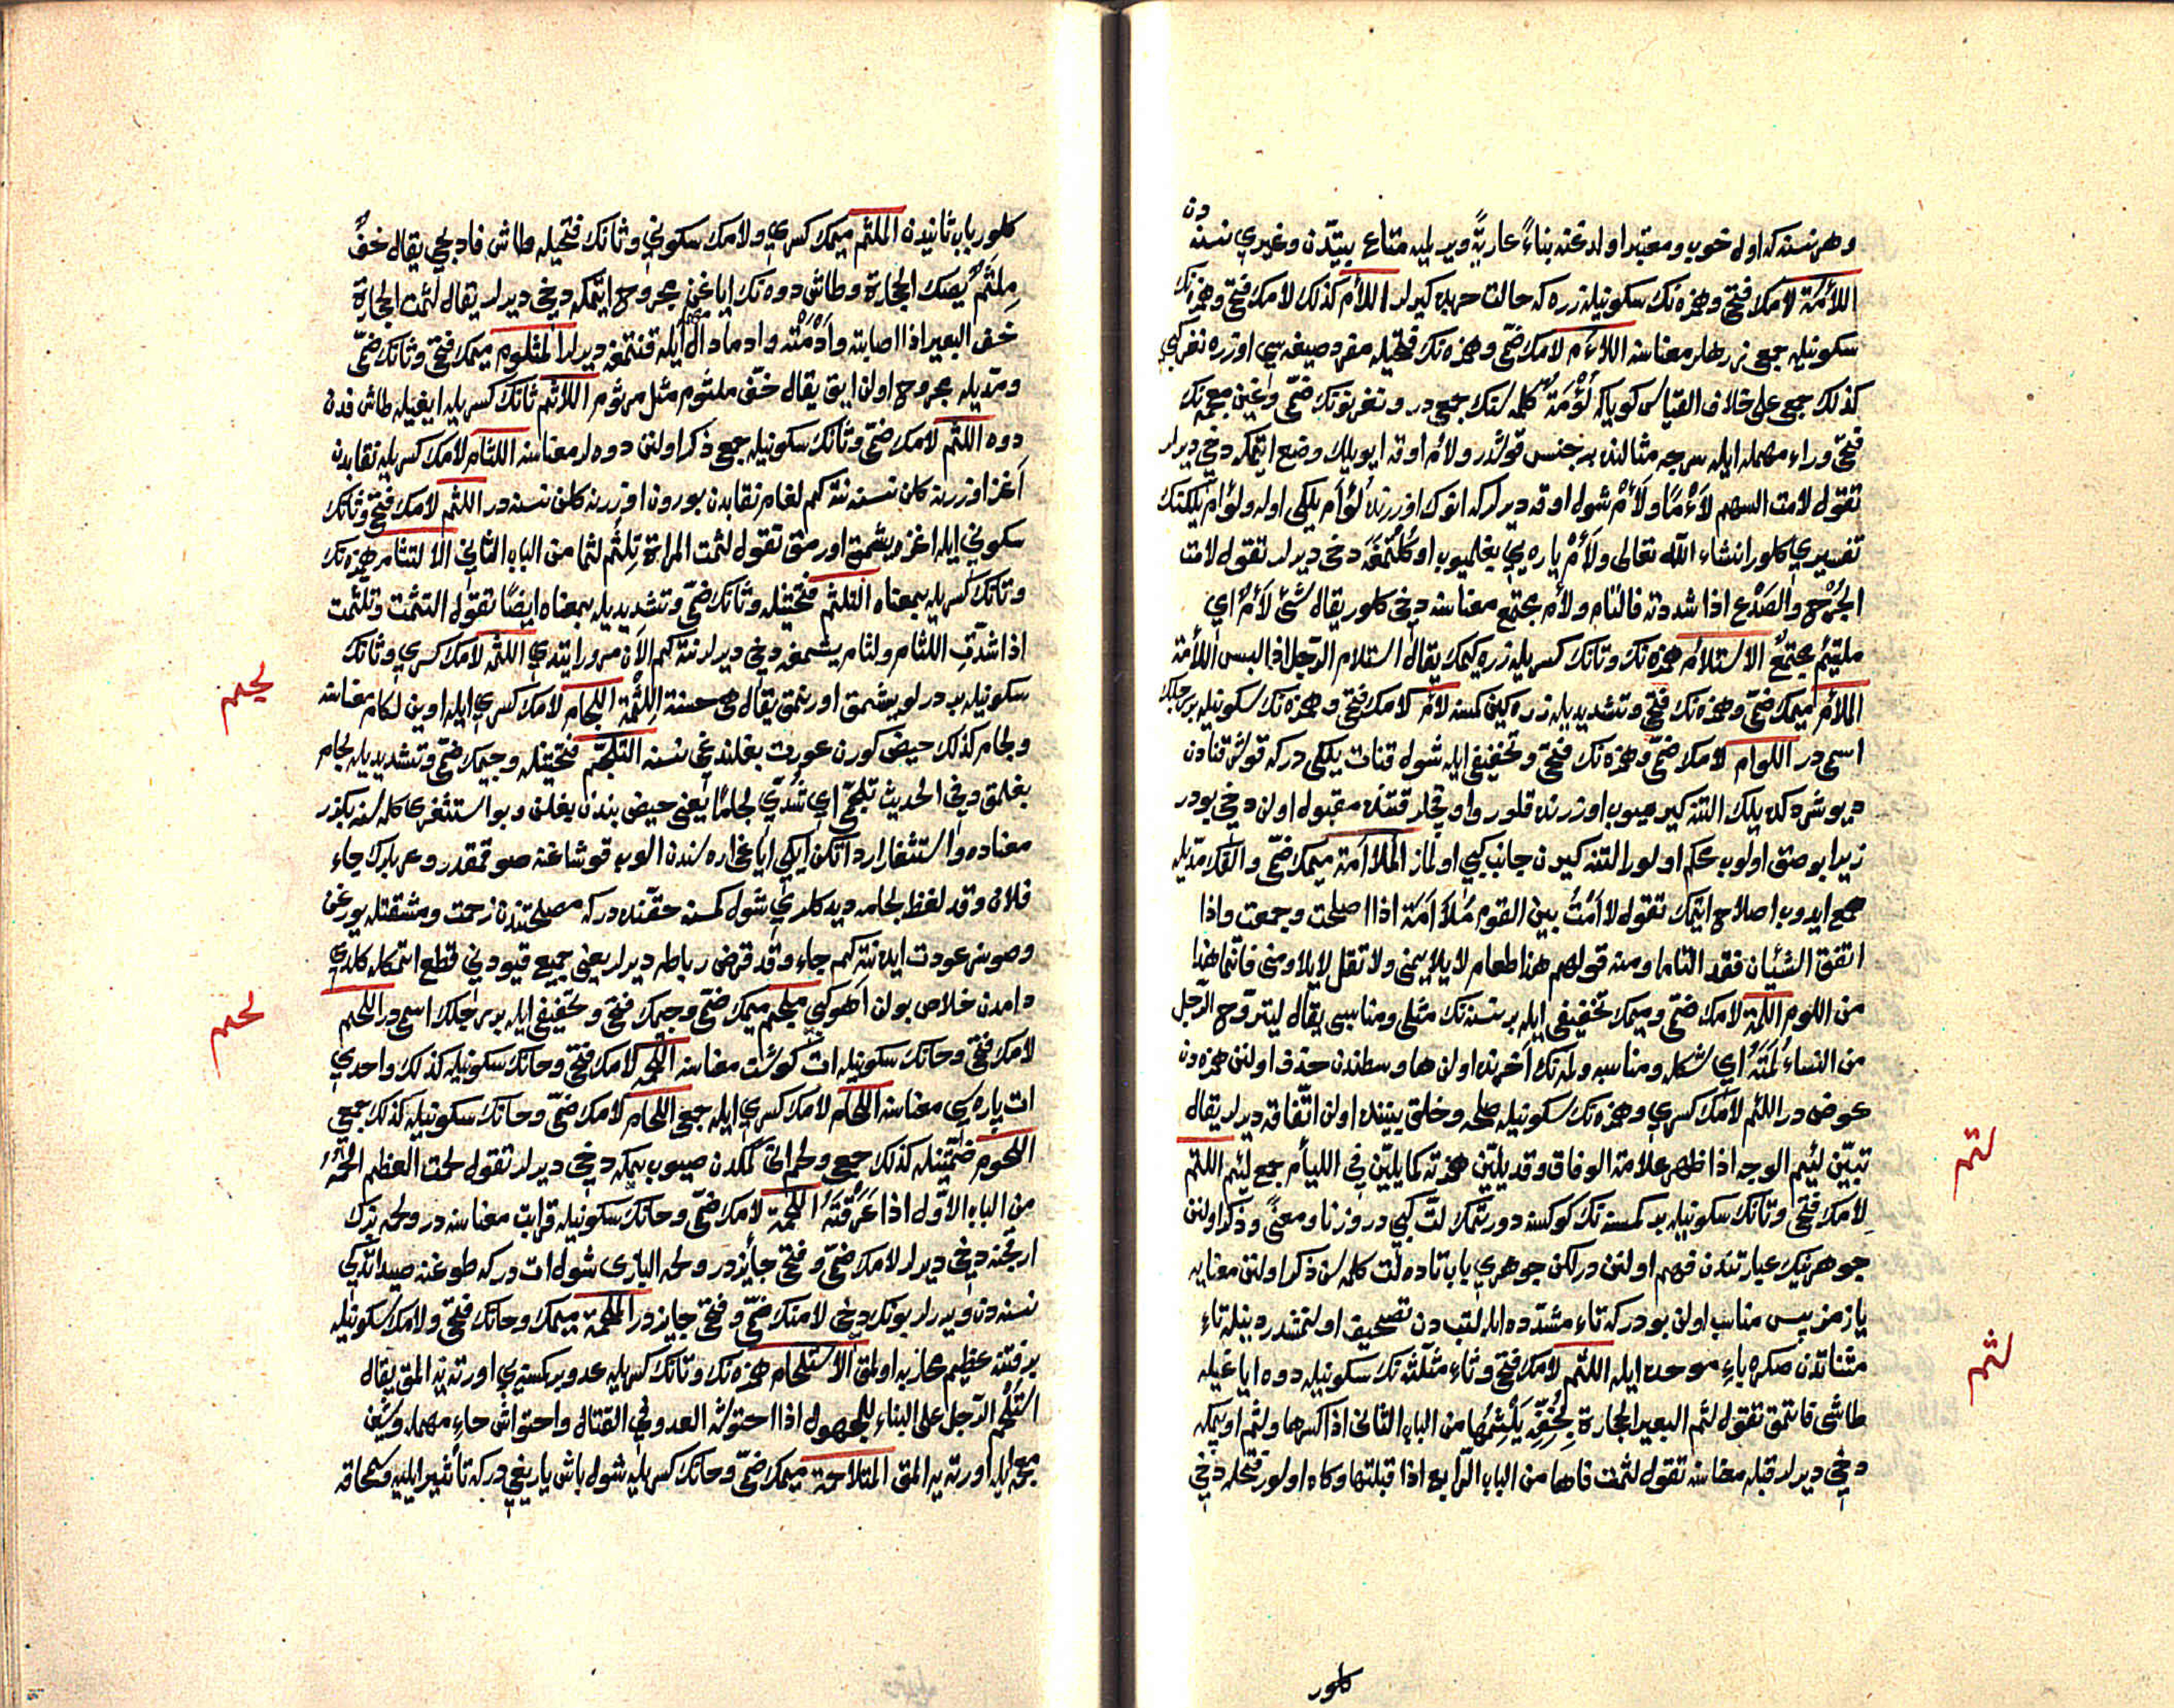 دن
وهر نسنه كه اوله خوب ومعتبر اولدغنه بناءً عاريةً ويريليه متاع بيتدن وغيري نسنه
اللأمة لامك فتحى وهمزه نك سكونيله زره كه حالت حربده كيرلر اللأم كذلك لامك فتحى وهمزه نك
سكونيله جمعى زرهلر معناسنه اللؤم لامك ضمى وهمزه نك فتحيله مفرد صيغه سى اوزره نغر كبى
كذلك جمعى على خلاف القياس كوياكه لؤمة كلمه سنك جمعى در ونغر نونك ضمى وغين معجمه نك
فتحى وراء مهمله ايله سرجه مثالنده بر جنس قوشدر ولأم اوقه ايو يلك وضع ايتمكه دخى ديرلر
تقول لأمت السهم لأما ولأم شول اوقه ديرلر كه انوك اوزرنده لؤام يلكى اوله ولؤام يلكنك
تفسيري كلور انشاء الله تعالى ولأم ياره يي بغلميوب اوكلتمغه دخى ديرلر تقول لأمت
الجرح والصدع اذا شددته فالتأم ولأم مجتمع معناسنه دخى كلور يقال شئ لأم اي
ملتئم مجتمع الاستلآم همزه نك وتانك كسريله زره كيمك يقال استلأم الرجل اذا لبس اللأمة
الملأم ميمك ضمى وهمزه نك فتحى وتشديديله زره كيمن كمسنه لأم لامك فتحى وهمزه نك سكونيله بر رجلك
اسمى در اللوام لامك ضمى وهمزه نك فتحى وتخفيفى ايله شول قنات يلكى دركه قوش قنادن
ديوشرد كده يلك التنه كيرميوب اوزرنده قلور واوقجلر قتنده مقبول اولن دخى بودر
زيرا بوصنق اولوب محكم اولور التنه كيرن جانب كبى اولماز الملاأمة ميمك ضمى والفك مديله
جمع ايدوب اصلاح ايتمك تقول لاأمت بين القوم ملاأمة اذا اصلحت وجمعت واذا
اتفق الشيئان فقد التأما ومنه قولهم هذا طعام لا يلايمنى ولا تقل لا يلاومنى فانما هذا
من اللوم اللمة لامك ضمى وميمك تخفيفى ايله بر نسنه نك مثلى ومناسبى يقال ليتزوج الرجل
من النساء لمته اي شكله ومناسبه ولمه نك آخرنده اولن ها وسطندن حذف اولنن همزه دن
عوض در اللئم لامك كسري وهمزه نك سكونيله صلحه وخلق بيننده اولن اتفاقه ديرلر يقال
تبين لئيم الوجه اذا ظهر علامة الوفاق وقد يلين همزته كما يلين في اللئام جمع لئيم اللتم
لامك فتحى وتانك سكونيله بر كمسنه نك كوكسنه دورتمك لت كبى در وزنا ومعنى وذكر اولنن
جوهرينك عبارتندن فهم اولنن در لكن جوهري باب تاده لت كلمه سن ذكر اولنن معنايه
يازمز پس مناسب اولن بودر كه تاء مشدده ايله لتب دن تصحيف اولنمشدر دينله تاء
مثناتدن صكره باء موحده ايله اللثم لامك فتحى وثاء مثلثه نك سكونيله دوه اياغيله
طاشى قاتمق تقول لثم البعير الحجارة بخفه يلثمها من الباب الثانى اذا كسرها ولثم اوپمكه
دخى ديرلر قبله معناسنه تقول لثمت فاها من الباب الرابع اذا قبلتها وكاه اولور فتحله دخى
لتم
لثم
كلور
كلور باب ثانيدن الملثم ميمك كسري ولامك سكوني وثانك فتحيله طاش قاديجى يقال خف
ملثم يصك الحجارة وطاش دوه نك اياغن مجروح ايتمكه دخى ديرلر يقال لثمت الحجارة
خف البعير اذا اصابته وادمته وادما دال مهمله ايله قنتمغه ديرلر الملثوم ميمك فتحى وثانك ضمى
ومديله مجروح اولن ايق يقال خف ملثوم مثل مرثوم اللاثم ثانك كسريله اياغيله طاش قدن
دوه اللثم لامك ضمى وثانك سكونيله جمعى ذكر اولنن دوه لر معناسنه اللثام لامك كسريله نقابدن
آغز اوزرنه كلن نسنه نته كم لفام نقابدن بورون اوزرنه كلن نسنه در اللثم لامك فتحى وثانك
سكوني ايله اغزه يشمق اورمق تقول لثمت المراة تلثم لثما من الباب الثانى الالتثام همزه نك
وتانك كسريله بمعناه التلثم فتحتينله وثانك ضمى وتشديديله بمعناه ايضا تقول التثمت وتلثمت
اذا شدت اللثام ولثام يشمغه دخى ديرلر نته كم الآن مرور ايتدي اللثمه لامك كسري وثانك
سكونيله بر درلو يشمق اورنمق يقال هى حسنة اللثمة اللجام لامك كسري ايله اوين لكام معناسنه
ولجام كذلك حيض كورن عورت بغلندغى نسنه التلجم فتحتينله وجيمك ضمى وتشديديله لجام
بغلمق وفي الحديث تلجمى اي شدي لجاما يعنى حيض بندن بغلن وبو استثفرى كلمه سنه بكزر
معناده واستثفار ار اتكن ايكى اياغى اره سندن الوب قوشاغنه صوقمقدر وعربلرك جاء
فلان وقد لفظ لجامه ديدكلري شول كمسنه حقنده در كه مصلحتندن زحمت ومشقتله يورغن
وصوسز عودت ايده نته كم جاء وقد قرض رباطه ديرلر يعنى جميع قيودني قطع اتمكله كلدي
دامدن خلاص بولن آهو كبى ملجم ميمك ضمى وجيمك فتحى وتخفيفى ايله بر رجلك اسمى در اللحم
لامك فتحى وحانك سكونيله ات كوشت معناسنه اللحمه لامك فتحى وحانك سكونيله كذلك واحدي
ات پاره سى معناسنه اللحام لامك كسري ايله جمعى اللحام لامك ضمى وحانك سكونيله كذلك جمعى
اللحوم ضمتينله كذلك جمعى ولحم اتى كمكدن صيوب يمكه دخى ديرلر تقول لحمت العظم الحمه
من الباب الاول اذا عرقته اللحمة لامك ضمى وحانك سكونيله قرابت معناسنه در ولحمه بزك
ارغجنه دخى ديرلر لامك ضمى وفتحى جائزدر ولحمه البازى شول ات در كه طوغنه صيد اتدكى
نسنه دن ويررلر بونك دخى لامنك ضمى وفتحى جايزدر الملحمة ميمك وحانك فتحى ولامك سكونيله
بر فتنه عظيم محاربه اولمق الاستلحام همزه نك وتانك كسريله عدو بر كمسنه يي اورته يه المق يقال
استلحم الرجل على البناء للمجهول اذا احتوشه العدو في القتال واحتواش حاء مهمله وشين
معجمه ايله اورته يه المق المتلاحمة ميمك ضمى وحانك كسريله شول باش ياريغى در كه تأثير ايليه وسمحاقه
لجم
لحم